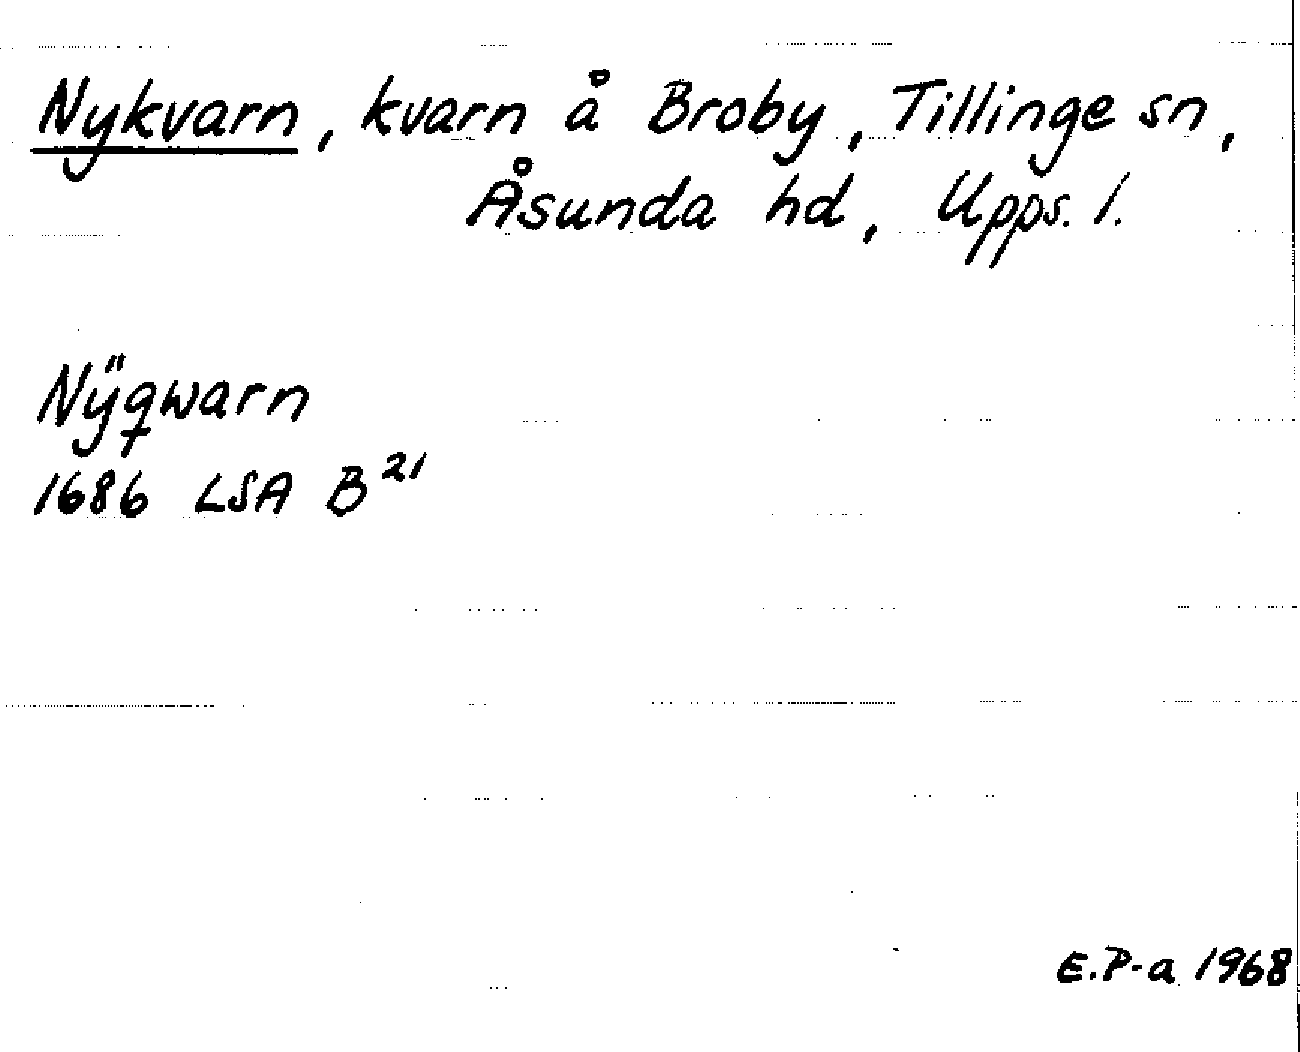 Nykvarn, kvarn å Broby, Tillinge sn,
Åsunda hd, Upps. l.
Nÿqwarn
1686 LSA B 21
E.P-a 1968